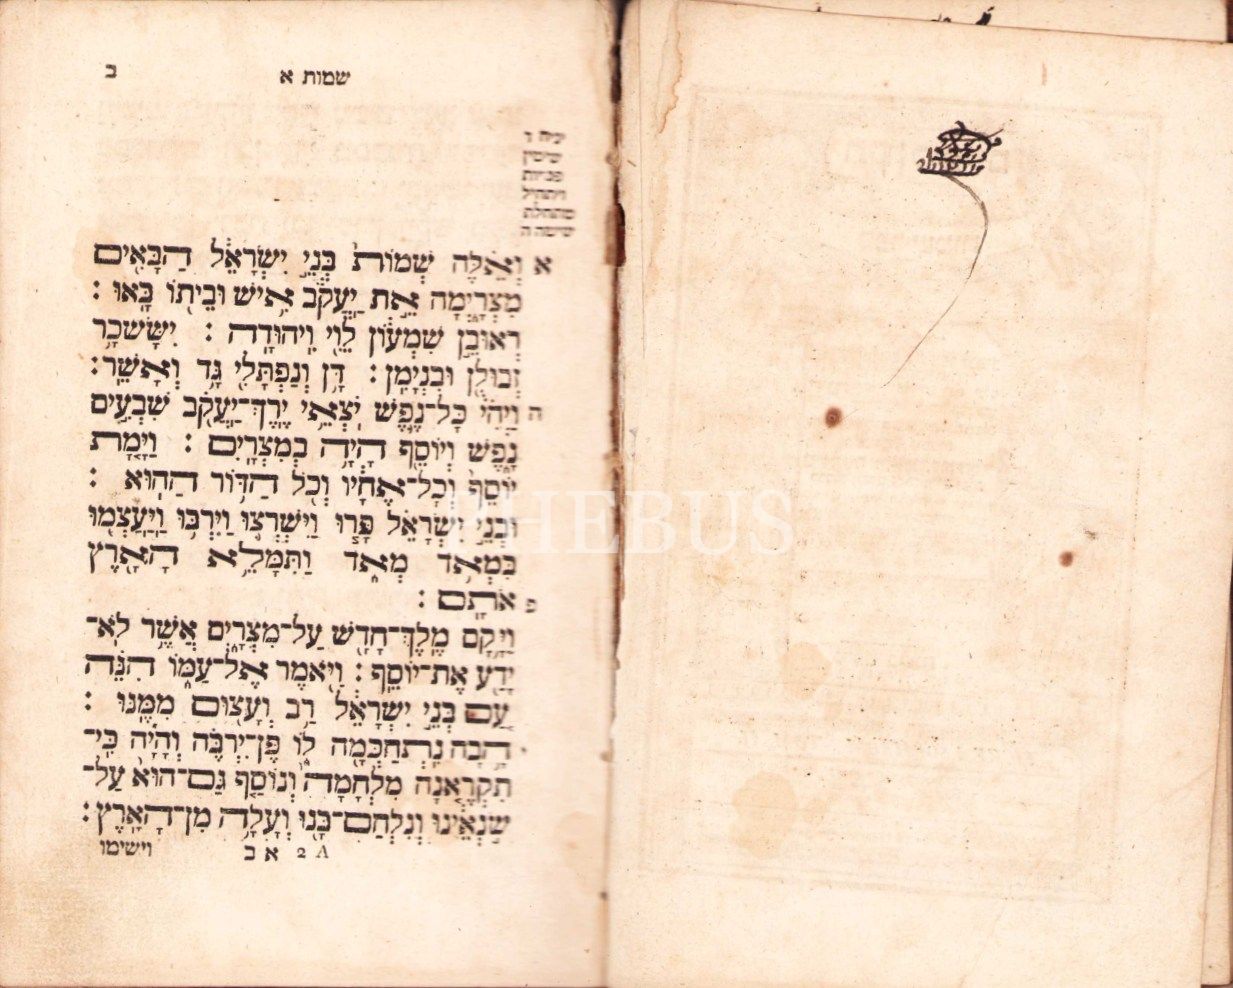 שמות א
ב
וְאֵ֗לֶּה שְׁמוֹת֙ בְּנֵ֣י יִשְׂרָאֵ֔ל הַבָּאִ֖ים
א
מִצְרָ֑יְמָה אֵ֣ת יַעֲקֹ֔ב אִ֥ישׁ וּבֵית֖וֹ בָּֽאוּ :
רְאוּבֵ֣ן שִׁמְע֔וֹן לֵוִ֖י וִֽיהוּדָֽה : יִשָּׂשכָ֥ר
זְבוּלֻ֖ן וּבִנְיָמִֽן : דָּ֥ן וְנַפְתָּלִ֖י גָּ֥ד וְאָשֵֽׁר :
וַֽיְהִ֗י כָּל־נֶ֛פֶשׁ יֹצְאֵ֥י יֶֽרֶךְ־יַעֲקֹ֖ב שִׁבְעִ֣ים
ה
נָ֑פֶשׁ וְיוֹסֵ֖ף הָיָ֥ה בְמִצְרָֽיִם : וַיָּ֤מָת
יוֹסֵף֙ וְכָל־אֶחָ֔יו וְכֹ֖ל הַדּ֥וֹר הַהֽוּא :
וּבְנֵ֣י יִשְׂרָאֵ֗ל פָּר֧וּ וַֽיִּשְׁרְצ֛וּ וַיִּרְבּ֥וּ וַיַּֽעַצְמ֖וּ
בִּמְאֹ֣ד מְאֹ֑ד וַתִּמָּלֵ֥א הָאָ֖רֶץ
אֹתָֽם :
פ
וַיָּ֥קָם מֶֽלֶךְ־חָדָ֖שׁ עַל־מִצְרָ֑יִם אֲשֶׁ֥ר לֹֽא־
יָדַ֖ע אֶת־יוֹסֵֽף : וַיֹּ֖אמֶר אֶל־עַמּ֑וֹ הִנֵּ֗ה
עַ֚ם בְּנֵ֣י יִשְׂרָאֵ֔ל רַ֥ב וְעָצ֖וּם מִמֶּֽנּוּ :
הָ֥בָה נִֽתְחַכְּמָ֖ה ל֑וֹ פֶּן־יִרְבֶּ֗ה וְהָיָ֞ה כִּֽי־
תִקְרֶ֤אנָה מִלְחָמָה֙ וְנוֹסַ֤ף גַּם־הוּא֙ עַל־
שֹׂ֣נְאֵ֔ינוּ וְנִלְחַם־בָּ֖נוּ וְעָלָ֥ה מִן־הָאָֽרֶץ :
A 2 א ב
וישימו
THEBUS